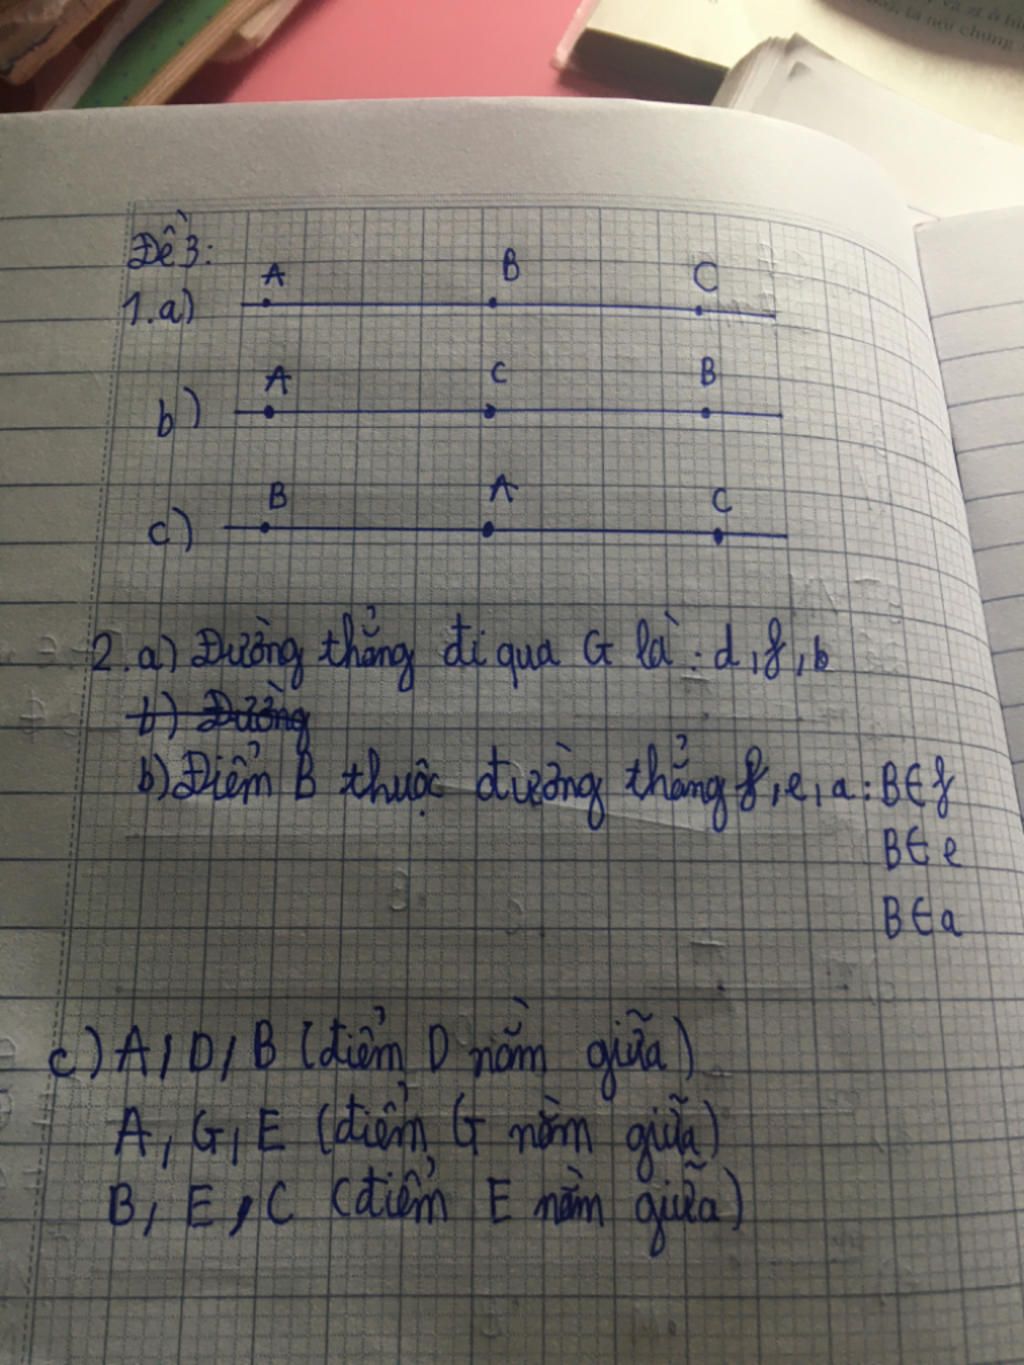 Đề 3:
1.a) A B C
b) A C B
c) B A C
2.a) Đường thẳng đi qua G là: d, f, b
b) Đường
b) Điểm B thuộc đường thẳng f, e, a: B∈f
B∈e
B∈a
c) A, D, B (điểm D nằm giữa)
A, G, E (điểm G nằm giữa)
B, E, C (điểm E nằm giữa)